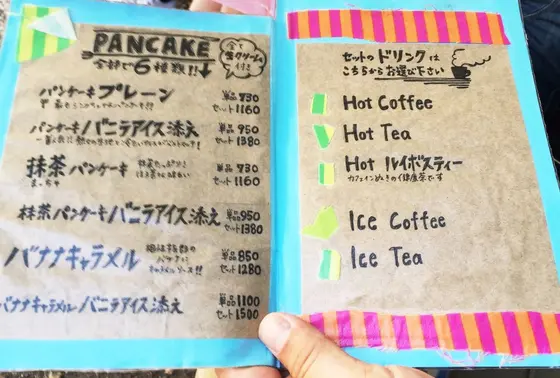 PANCAKE
全部で6種類!!↓
全て
生クリーム
付き
パンケーキプレーン
単品 730
セット 1160
パンケーキ バニラアイス添え
単品 950
セット 1380
抹茶 パンケーキ
まっちゃ
単品 730
セット 1160
抹茶パンケーキバニラアイス添え
単品 950
セット 1380
バナナキャラメル
相性抜群の
バナナに
キャラメルソース!!
単品 850
セット 1280
バナナキャラメルバニラアイス添え
単品 1100
セット 1500
セットのドリンクは
こちらからお選び下さい
Hot Coffee
Hot Tea
Hot ルイボスティー
カフェインぬきの健康茶です
Ice Coffee
Ice Tea